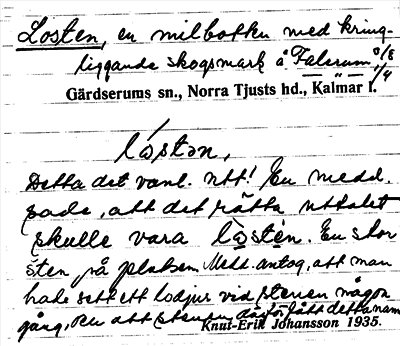 Losten, en milbotten med kring-
liggande skogsmark å Falerum 8/8
1/4
Gärdserums sn., Norra Tjusts hd., Kalmar l.
lòstən,
Detta det vanl. utt! En medd.
sade, att det rätta uttalet
skulle vara lòstèn. En stor
sten på platsen. Medd. antog, att man
hade sett ett lodjur vid stenen någon
gång, och att stenen därför fått detta namn
Knut-Erik Johansson 1935.